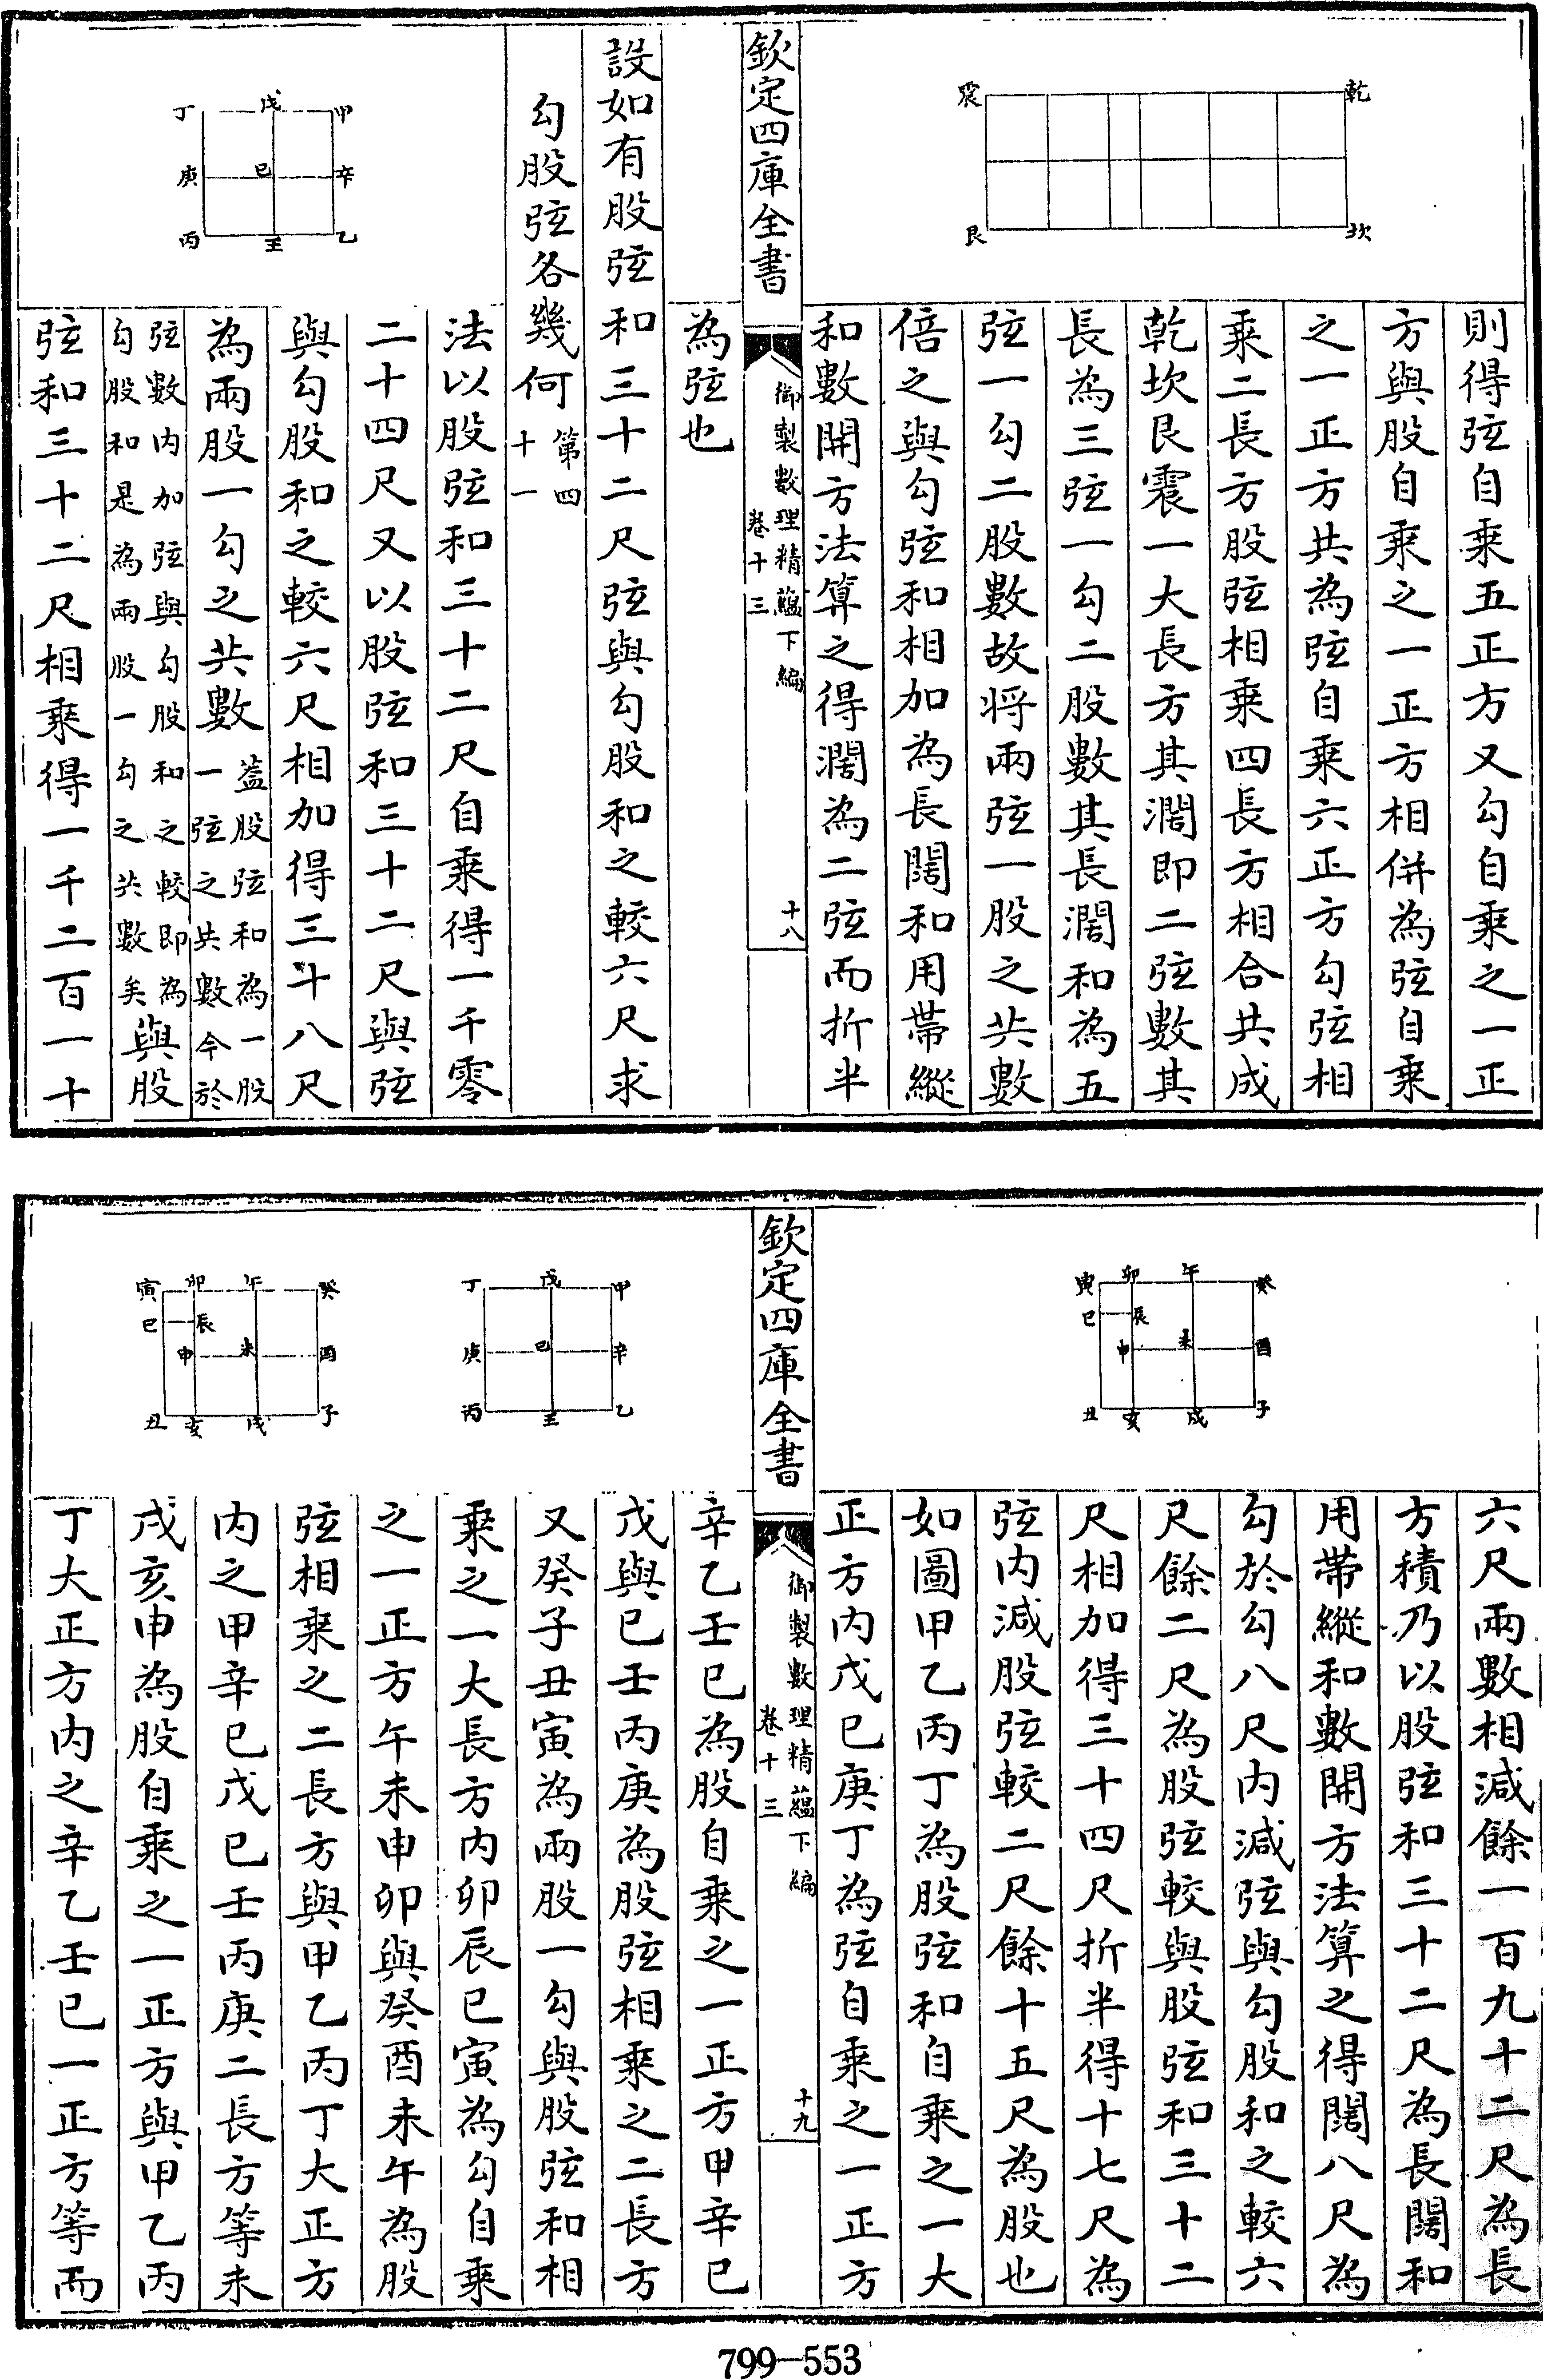 乾
震
坎
艮
則得弦自乘五正方又勾自乘之一正
方與股自乘之一正方相併為弦自乘
之一正方共為弦自乘六正方勾弦相
乘二長方股弦相乘四長方相合共成
乾坎艮震一大長方其濶即二弦數其
長為三弦一勾二股數其長濶和為五
弦一勾二股數故將兩弦一股之共數
倍之與勾弦和相加為長闊和用帶縱
和數開方法算之得濶為二弦而折半
欽定四庫全書
御製數理精蘊下編
卷十三
十八
為弦也
設如有股弦和三十二尺弦與勾股和之較六尺求
勾股弦各幾何第四
十一
甲
戊
丁
辛
己
庚
乙
壬
丙
法以股弦和三十二尺自乘得一千零
二十四尺又以股弦和三十二尺與弦
與勾股和之較六尺相加得三十八尺
為兩股一勾之共數葢股弦和為一股
一弦之共數今於
弦數内加弦與勾股和之較即為
勾股和是為兩股一勾之共數矣與股
弦和三十二尺相乘得一千二百一十
癸
午
卯
寅
辰
巳
酉
未
申
子
戌
亥
丑
六尺兩數相減餘一百九十二尺為長
方積乃以股弦和三十二尺為長闊和
用帶縱和數開方法算之得闊八尺為
勾於勾八尺内減弦與勾股和之較六
尺餘二尺為股弦較與股弦和三十二
尺相加得三十四尺折半得十七尺為
弦内減股弦較二尺餘十五尺為股也
如圖甲乙丙丁為股弦和自乘之一大
正方内戊己庚丁為弦自乘之一正方
欽定四庫全書
御製數理精蘊下編
卷十三
十九
辛乙壬己為股自乘之一正方甲辛己
戊與己壬丙庚為股弦相乘之二長方
又癸子丑寅為兩股一勾與股弦和相
乘之一大長方内卯辰巳寅為勾自乘
之一正方午未申卯與癸酉未午為股
弦相乘之二長方與甲乙丙丁大正方
内之甲辛己戊己壬丙庚二長方等未
戌亥申為股自乘之一正方與甲乙丙
丁大正方内之辛乙壬己一正方等而
甲
戊
丁
辛
己
庚
乙
壬
丙
癸
午
卯
寅
辰
巳
酉
未
申
子
戌
亥
丑
799-553